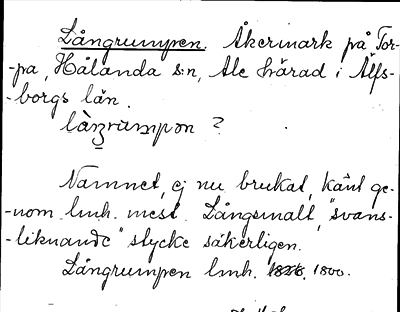 Långrumpen. Åkermark på Tor-
-pa, Hålanda s:n, Ale härad i Älfs-
-borgs län.
låŋrumpən ?
Namnet, ej nu brukat, känt ge-
-nom lmh. mest. Långsmalt, "svans-
-liknande" stycke säkerligen.
Långrumpen lmh. 1826. 1800.